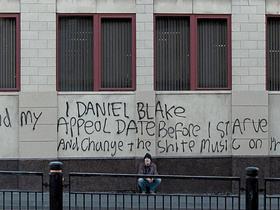 I DANIEL BLAKE
nd my APPEOL DATE BEfoRE I STARVE
And CHANgE tHE SHitE MUSiC on tH